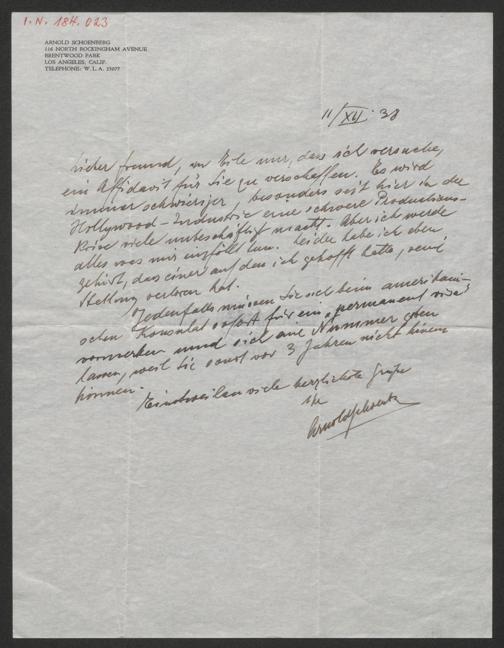 I.N. 184.023
ARNOLD SCHOENBERG
116 NORTH ROCKINGHAM AVENUE
BRENTWOOD PARK
LOS ANGELES, CALIF.
TELEPHONE: W.L.A. 35077
11/XII 38
Lieber Freund, in Eile nur, dass ich versuche,
ein Affidavit für Sie zu verschaffen. Es wird
immer schwieriger, besonders seit hier in der
Hollywood-Industrie eine schwere Productions-
Krise viele unbeschäftigt macht. Aber ich werde
alles was mir einfällt tun. Leider habe ich eben
gehört, dass einer auf den ich gehofft hatte, seine
Stellung verloren hat.
Jedenfalls müssen Sie sich beim amerikani-
schen Konsulat sofort für ein „permanent visa"
vormerken und sich eine Nummer geben
lassen, weil Sie sonst vor 3 Jahren nicht herein
können.
Einstweilen viele herzlichste Grüße
Ihr
Arnold Schoenberg